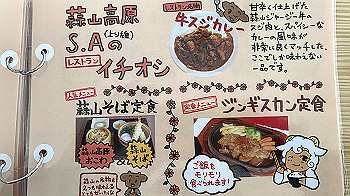 蒜山高原
S.A(上り線)
レストラン
イチオシ
レストラン名物
牛スジカレー
甘辛く仕上げた
蒜山ジャージー牛の
スジ肉と、スパイシーな
カレーの風味が
非常に良くマッチした、
ここでしか味わえない
一品です。
人気メニュー
蒜山そば定食
蒜山高原
おこわ
蒜山
そば
蒜山の名物を
定食メニュー
ジンギスカン定食
ご飯を
モリモリ
食べられます!